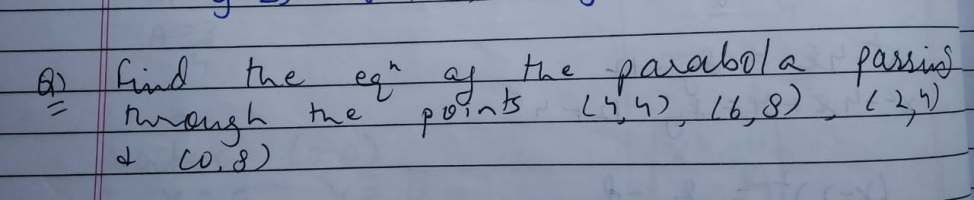 Q) Find the eqⁿ of the parabola passing
through the points (4,4), (6,8), (2,4)
& (0,8)